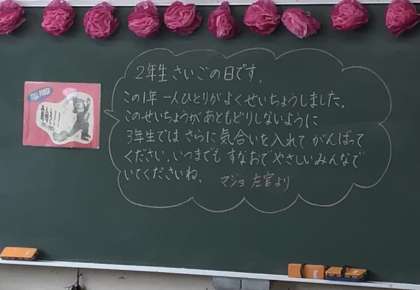 2年生さいごの日です。
この1年一人ひとりがよくせいちょうしました。
このせいちょうがあともどりしないように
3年生ではさらに気合いを入れてがんばって
ください。いつまでもすなおでやさしいみんなで
いてくださいね。 マジョ左官より